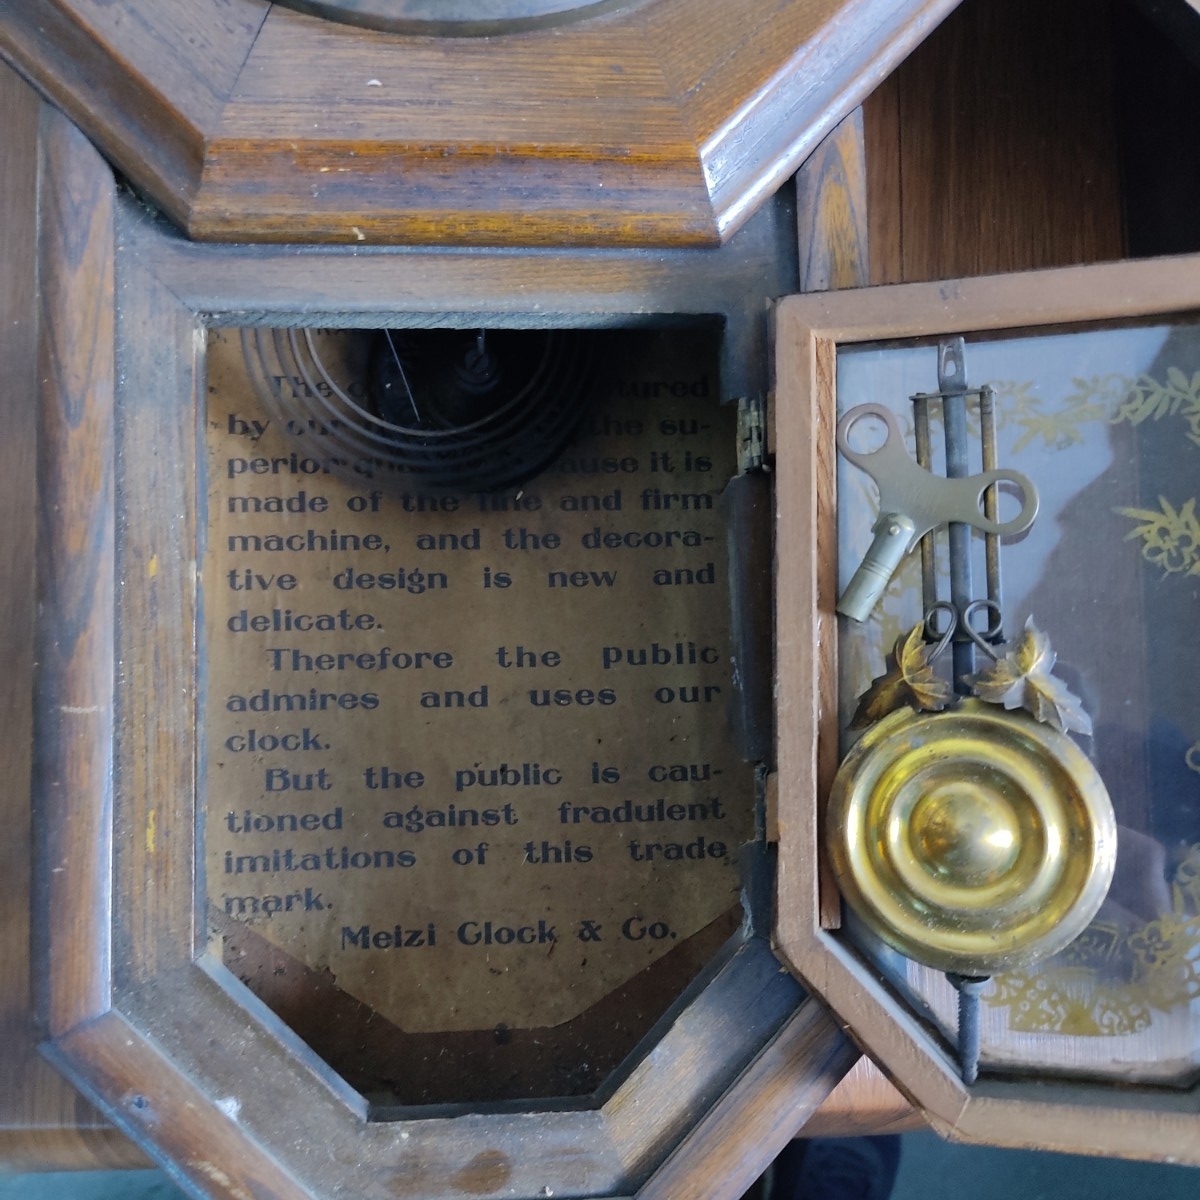 The
by our the su-
perior cause it is
made of the fine and firm
machine, and the decora-
tive design is new and
delicate.
Therefore the public
admires and uses our
clock.
But the public is cau-
tioned against fradulent
imitations of this trade
mark.
Meizi Clock & Co.